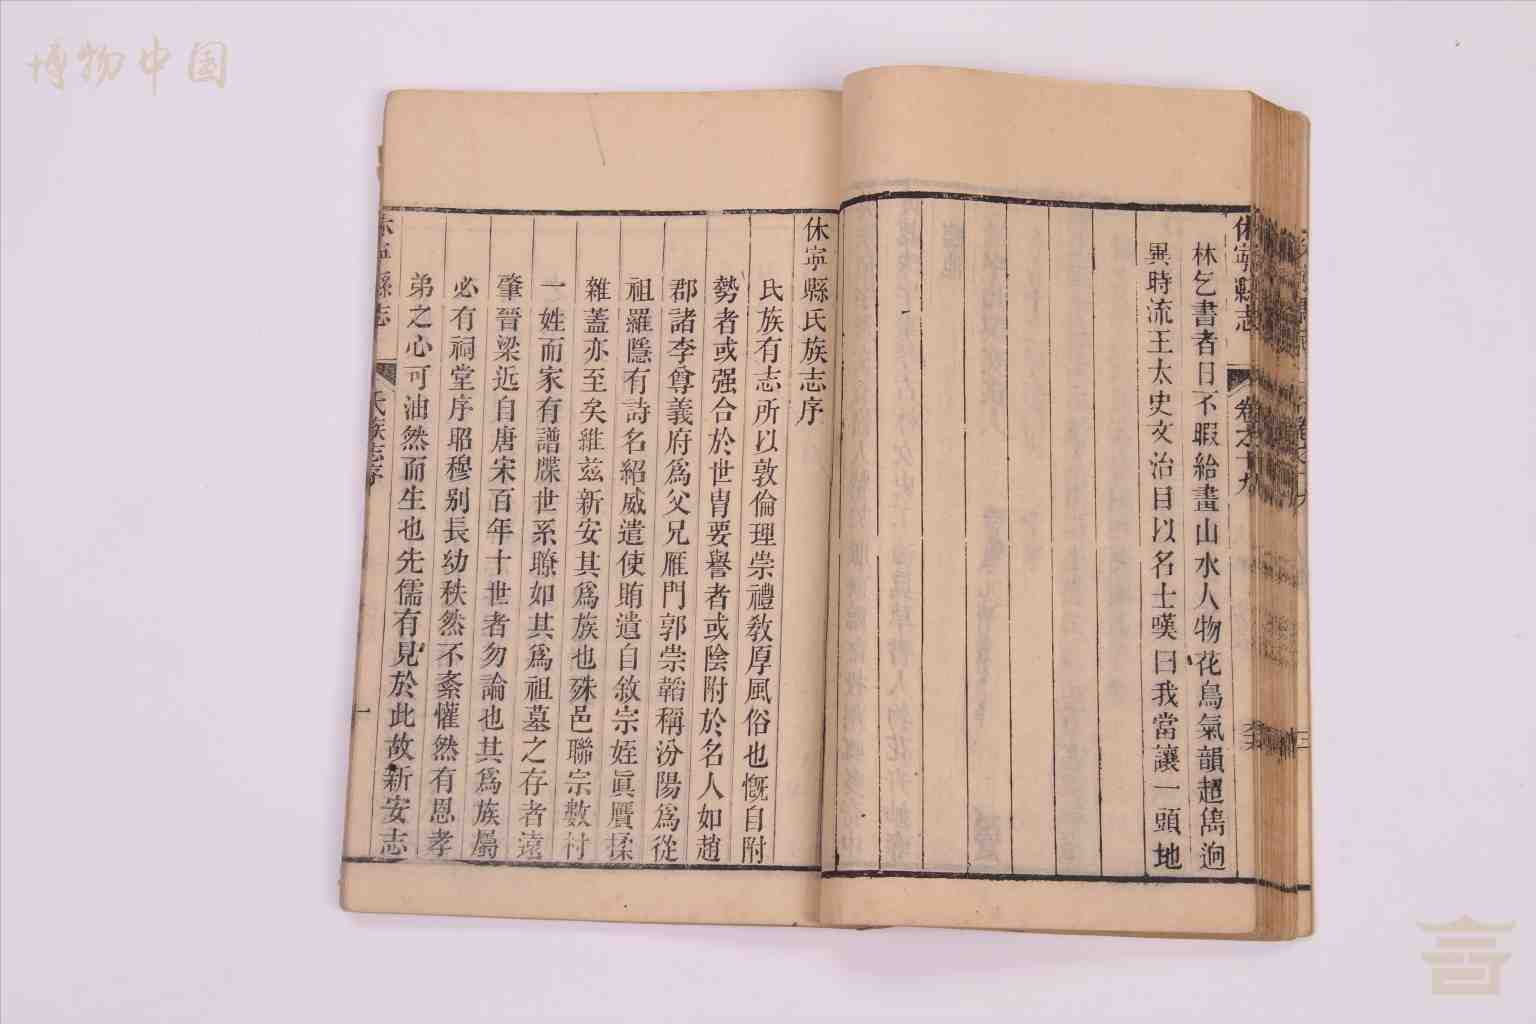 博物中国
休寧縣志
卷之十九
林乞書者日不暇給畫山水人物花鳥氣韻超雋迥
異時流王太史文治目以名士嘆曰我當讓一頭地
休寧縣氏族志序
氏族有志所以敦倫理崇禮教厚風俗也慨自附
勢者或强合於世胄要譽者或陰附於名人如趙
郡諸李尊義府爲父兄雁門郭崇韜稱汾陽爲從
祖羅隱有詩名紹威遣使賄遺自敘宗姪眞贋揉
雜蓋亦至矣維兹新安其爲族也殊邑聯宗數村
一姓而家有譜牒世系瞭如其爲祖墓之存者遠
肇晉梁近自唐宋百年十世者勿論也其爲族屬
必有祠堂序昭穆别長幼秩然不紊懽然有恩孝
弟之心可油然而生也先儒有見於此故新安志
休寧縣志
氏族志序
一